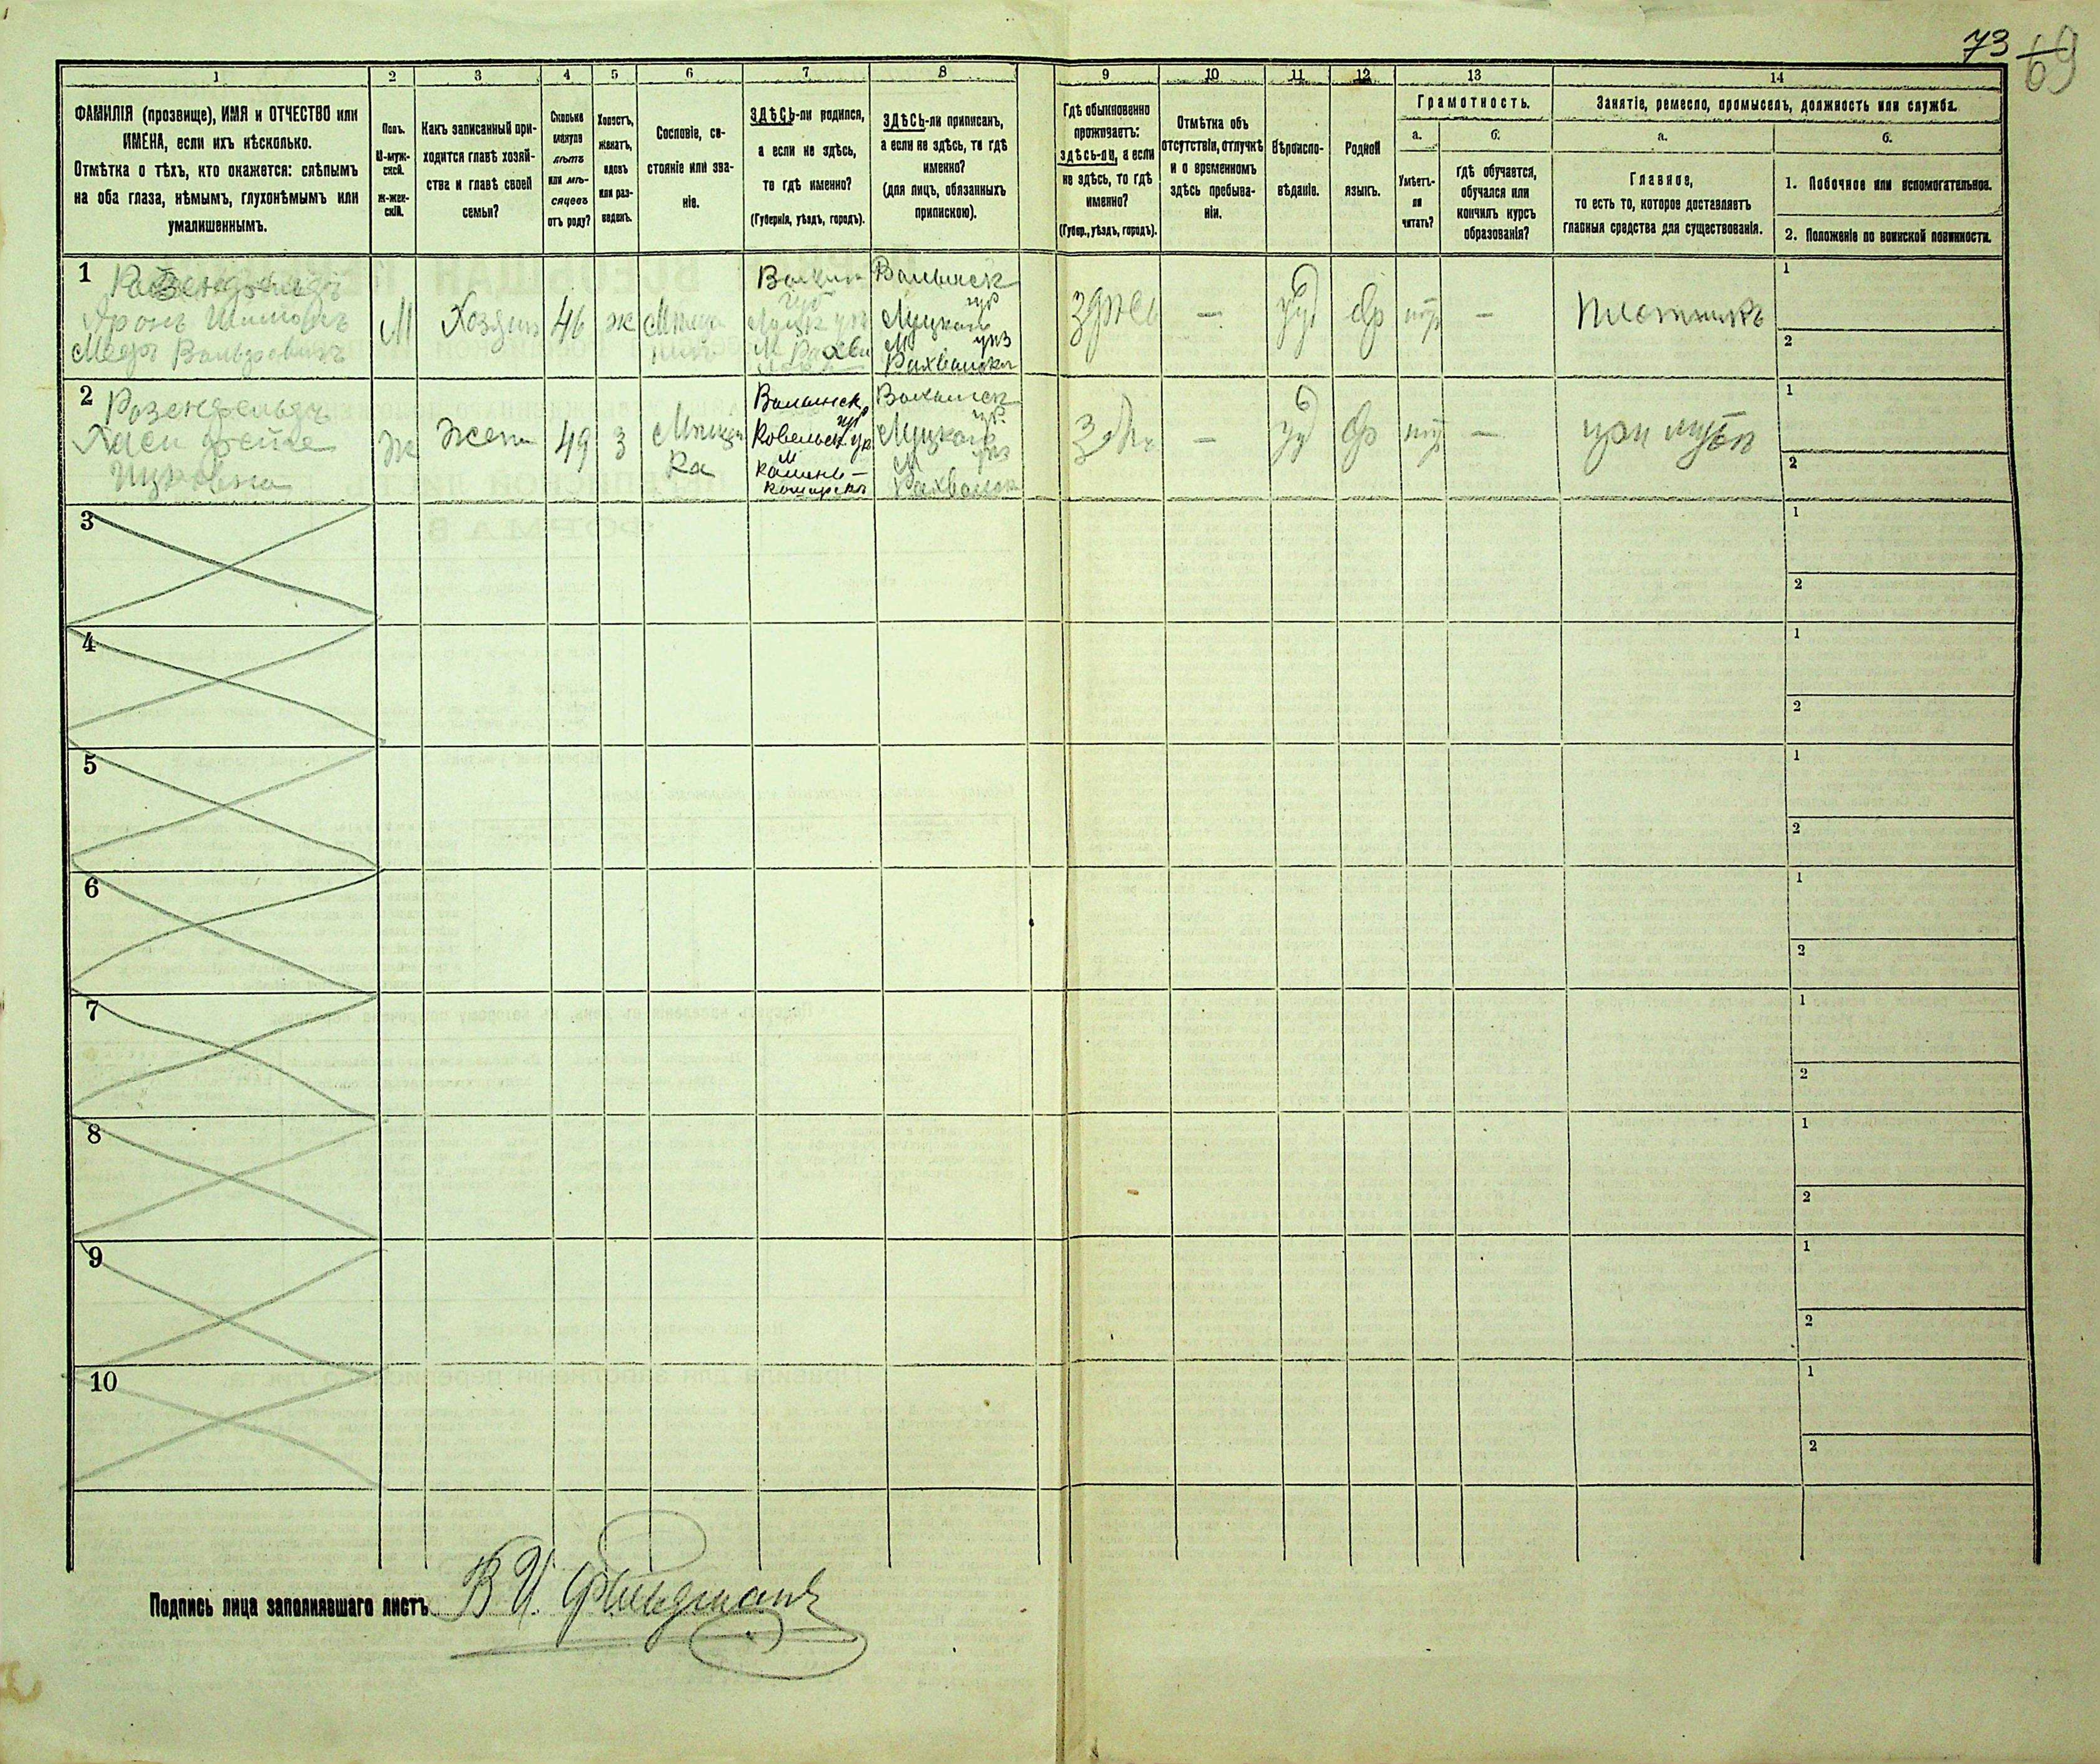 73
69
1
2
3
4
5
6
7
8
9
10
11
12
13
14
ФАМИЛІЯ (прозвище), ИМЯ и ОТЧЕСТВО или
ИМЕНА, если ихъ нѣсколько.
Отмѣтка о тѣхъ, кто окажется: слѣпымъ
на оба глаза, нѣмымъ, глухонѣмымъ или
умалишеннымъ.
Полъ.
М-муж-
ской.
Ж-жен-
скій.
Какъ записанный при-
ходится главѣ хозяй-
ства и главѣ своей
семьи?
Сколько
минуло
лѣтъ
или мѣ-
сяцевъ
отъ роду?
Холостъ,
женатъ,
вдовъ
или раз-
веденъ.
Сословіе, со-
стояніе или зва-
ніе.
ЗДѢСЬ-ли родился,
а если не здѣсь,
то гдѣ именно?
(Губернія, уѣздъ, городъ).
ЗДѢСЬ-ли приписанъ,
а если не здѣсь, то гдѣ
именно?
(для лицъ, обязанныхъ
припискою).
Гдѣ обыкновенно
проживаетъ:
здѣсь-ли, а если
не здѣсь, то гдѣ
именно?
(Губер., уѣздъ, городъ).
Отмѣтка объ
отсутствіи, отлучкѣ
и о временномъ
здѣсь пребыва-
ніи.
Вѣроиспо-
вѣданіе.
Родной
языкъ.
Грамотность.
а.
Умѣетъ-
ли
читать?
б.
гдѣ обучается,
обучался или
кончилъ курсъ
образованія?
Занятіе, ремесло, промыселъ, должность или служба.
а.
Главное,
то есть то, которое доставляетъ
главныя средства для существованія.
б.
1. Побочное или вспомогательное.
2. Положеніе по воинской повинности.
1
Розенфельдъ
М
Хозяин
46
ж
Волынск
губ
Луцкого
уѣз
М
здѣсь
—
—
Плотникъ
1
2
2
Розенфельдъ
Хася
Ицковна
Ж
Жена
49
З
Мѣщан
ка
Волынск
губ
Ковельск уѣ
М
Камень-
Каширскъ
Волынск
губ
Луцкого
уѣз
М
—
—
при мужѣ
1
2
3
1
2
4
1
2
5
1
2
6
1
2
7
1
2
8
1
2
9
1
2
10
1
2
Подпись лица заполнявшаго листъ
В И. Фельдманъ